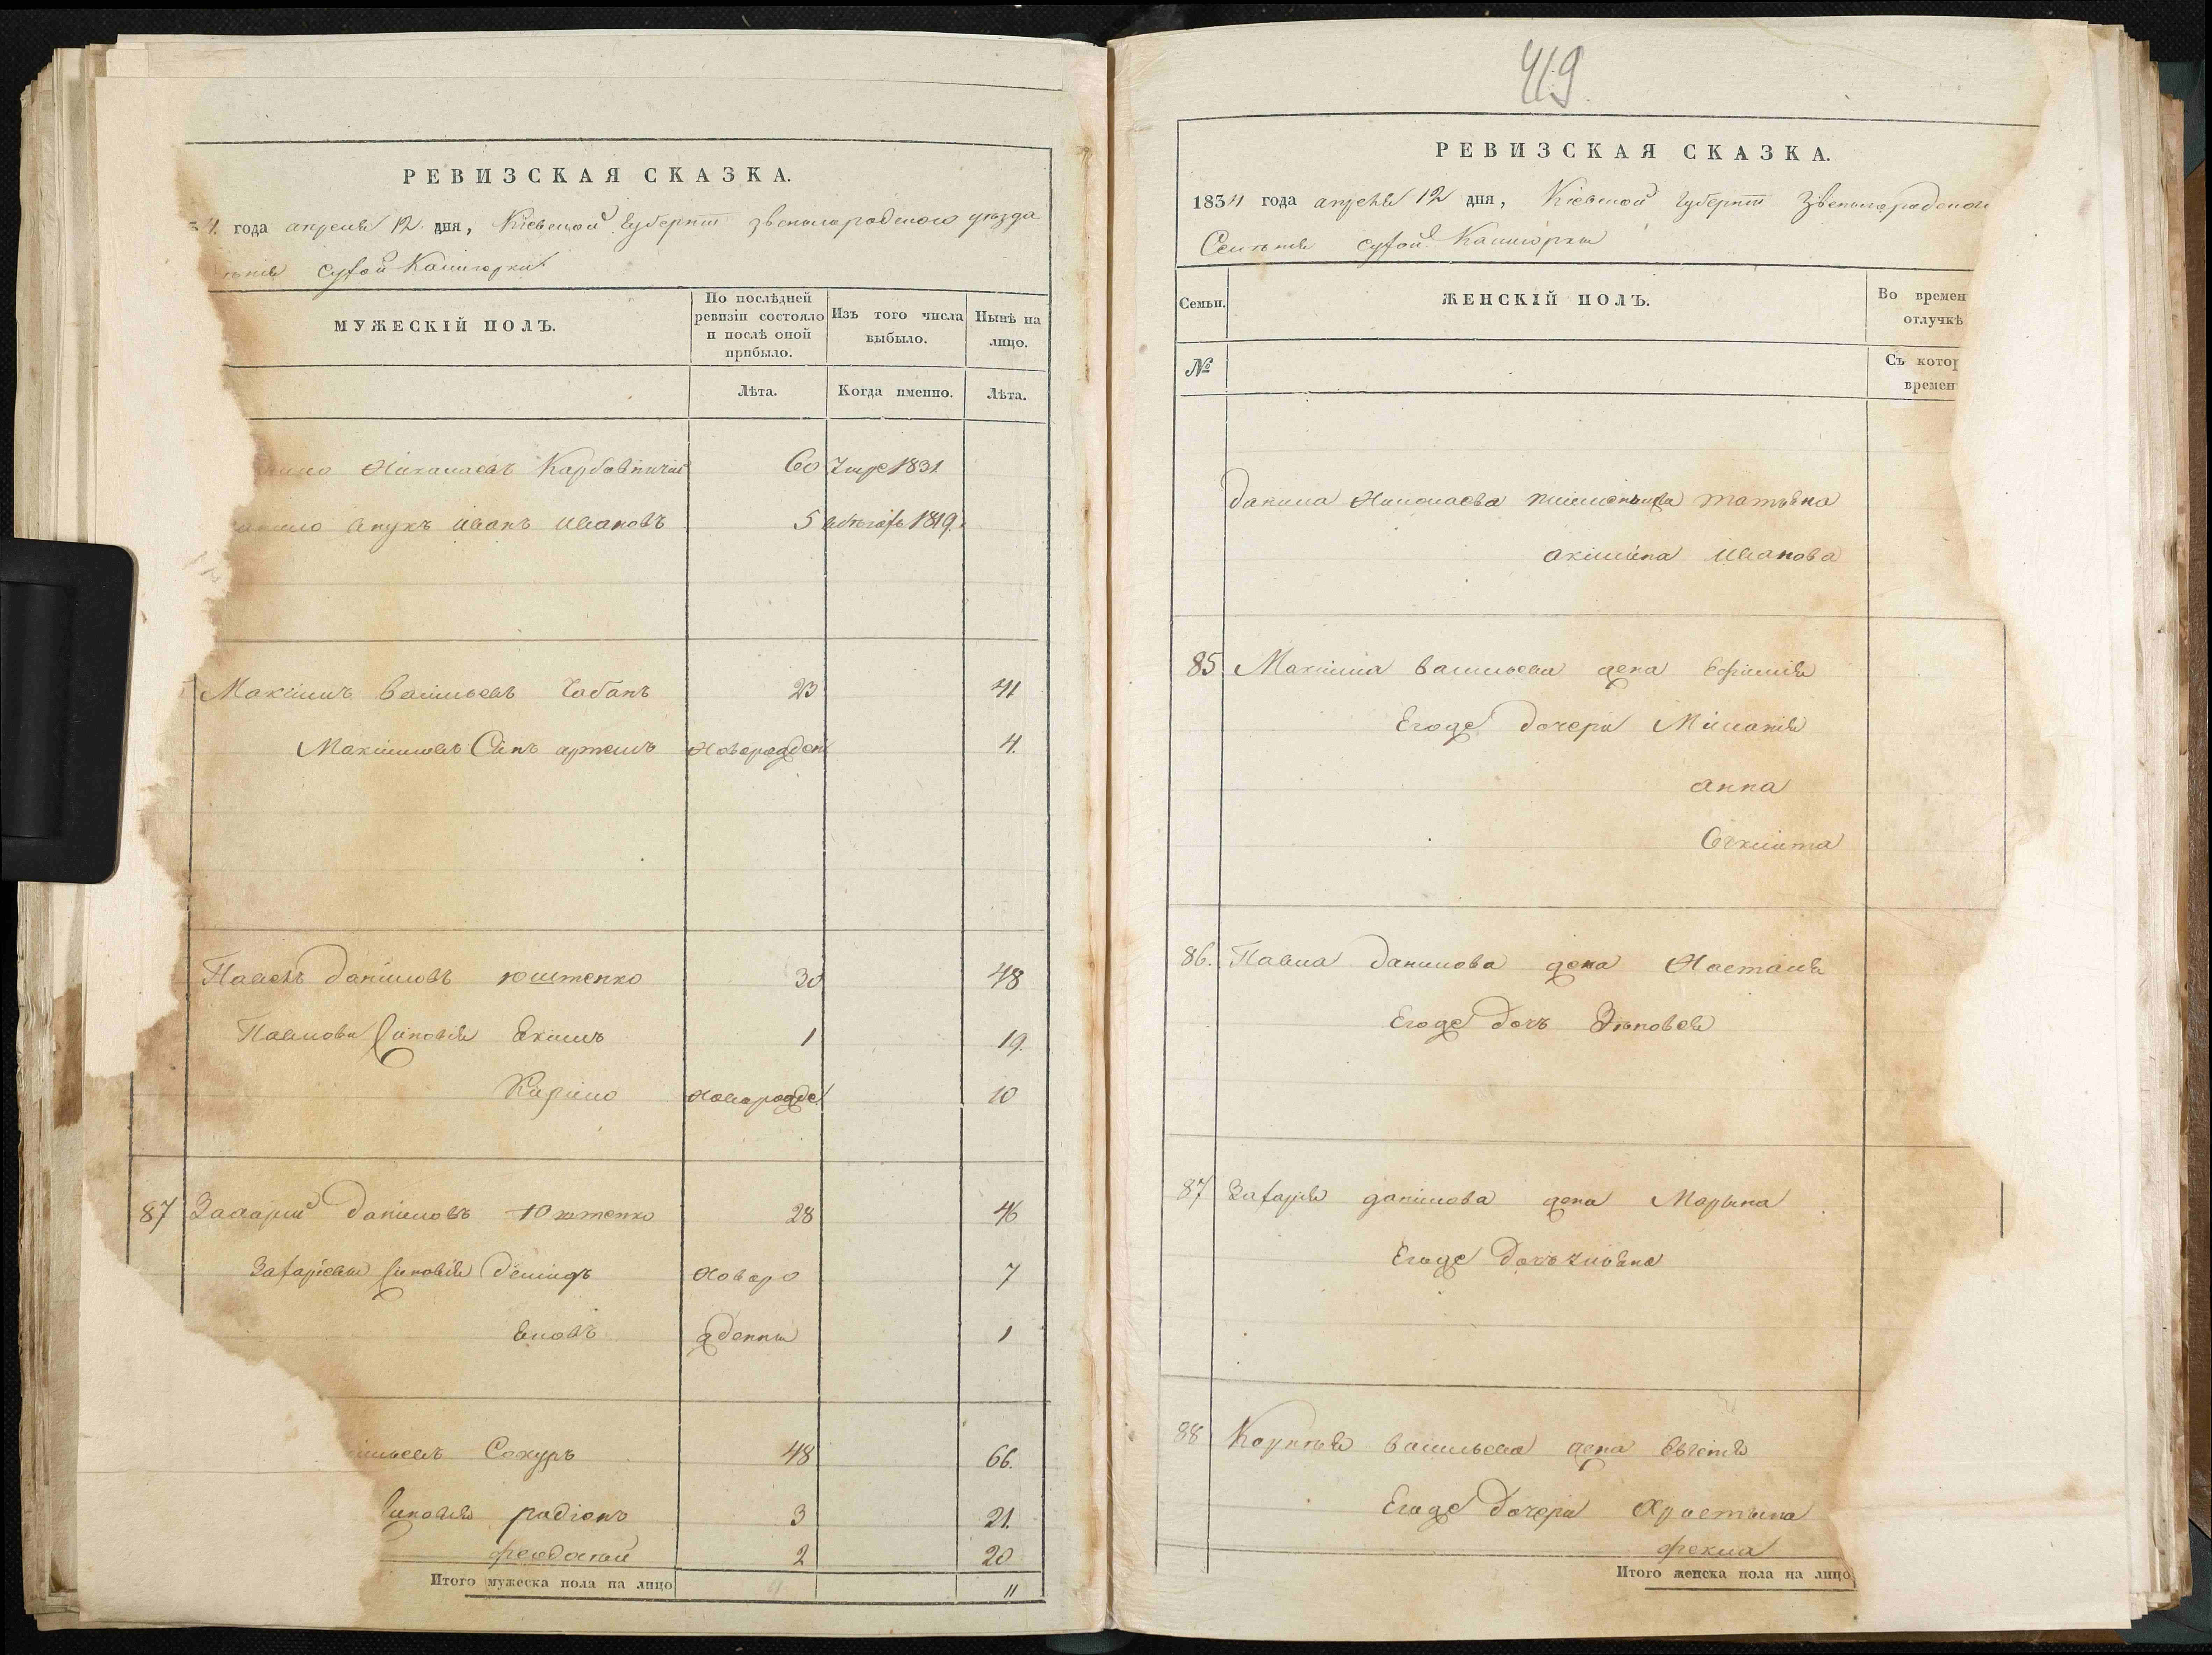 РЕВИЗСКАЯ СКАЗКА.
4 года апреля 12 дня, Кіевской Губерніи Звенигородского уезда
Сухой Калигорки
МУЖЕСКІЙ ПОЛЪ.
По послѣдней ревизіи состояло и послѣ оной прибыло.
Изъ того числа выбыло.
Нынѣ на лицо.
Лѣта.
Когда именно.
Лѣта.
Николаевъ 60 1831
внукъ Иванъ Ивановъ 5 1819
Максимъ Васильевъ Чабанъ 23 41
Максимовъ Синъ артемъ Новорожден 4
Павелъ Даниловъ Юхтенко 30 48
Павлова Синовья Екимъ 1 19
Кирило Новорожде 10
87 Захарий Даниловъ Юхтенко 28 46
Захаріева Синовья Демидъ Новоро 7
жденны 1
Сохуръ 48 66
Синовья радіонъ 3 21
феодосий 2 20
Итого мужеска пола на лицо 11
419
РЕВИЗСКАЯ СКАЗКА.
1834 года апреля 12 дня, Кіевской Губерніи Звенигородского
Селенія Сухой Калигорки
Семьи.
ЖЕНСКІЙ ПОЛЪ.
Во времен
отлучкѣ
№
Съ котор
времен
Данила Николаева татьяна
Иванова
85 Максима Васильева жена Ефимія
Егоже дочери Миланія
анна
86. Павла Данилова жена Настасія
Егоже дочь Зѣновья
87 Захарія Данилова жена Марына
Егоже дочь
88 Корнѣя Васильева жена
Егоже дочери Христына
фекла
Итого женска пола на лицо